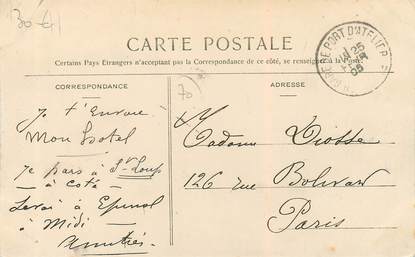 30 €
CARTE POSTALE
Certains Pays Étrangers n'acceptant pas la Correspondance de ce côté, se renseigner à la Poste.
CORRESPONDANCE
ADRESSE
PORT D'ATELIER
25
05
70
Je t'Envoie
Mon Hotel
Je pars à St Loup
— à Coté —
Serai à Epinal
à Midi —
Amitiés —
Madame Diotte
126 rue Bolivar
Paris